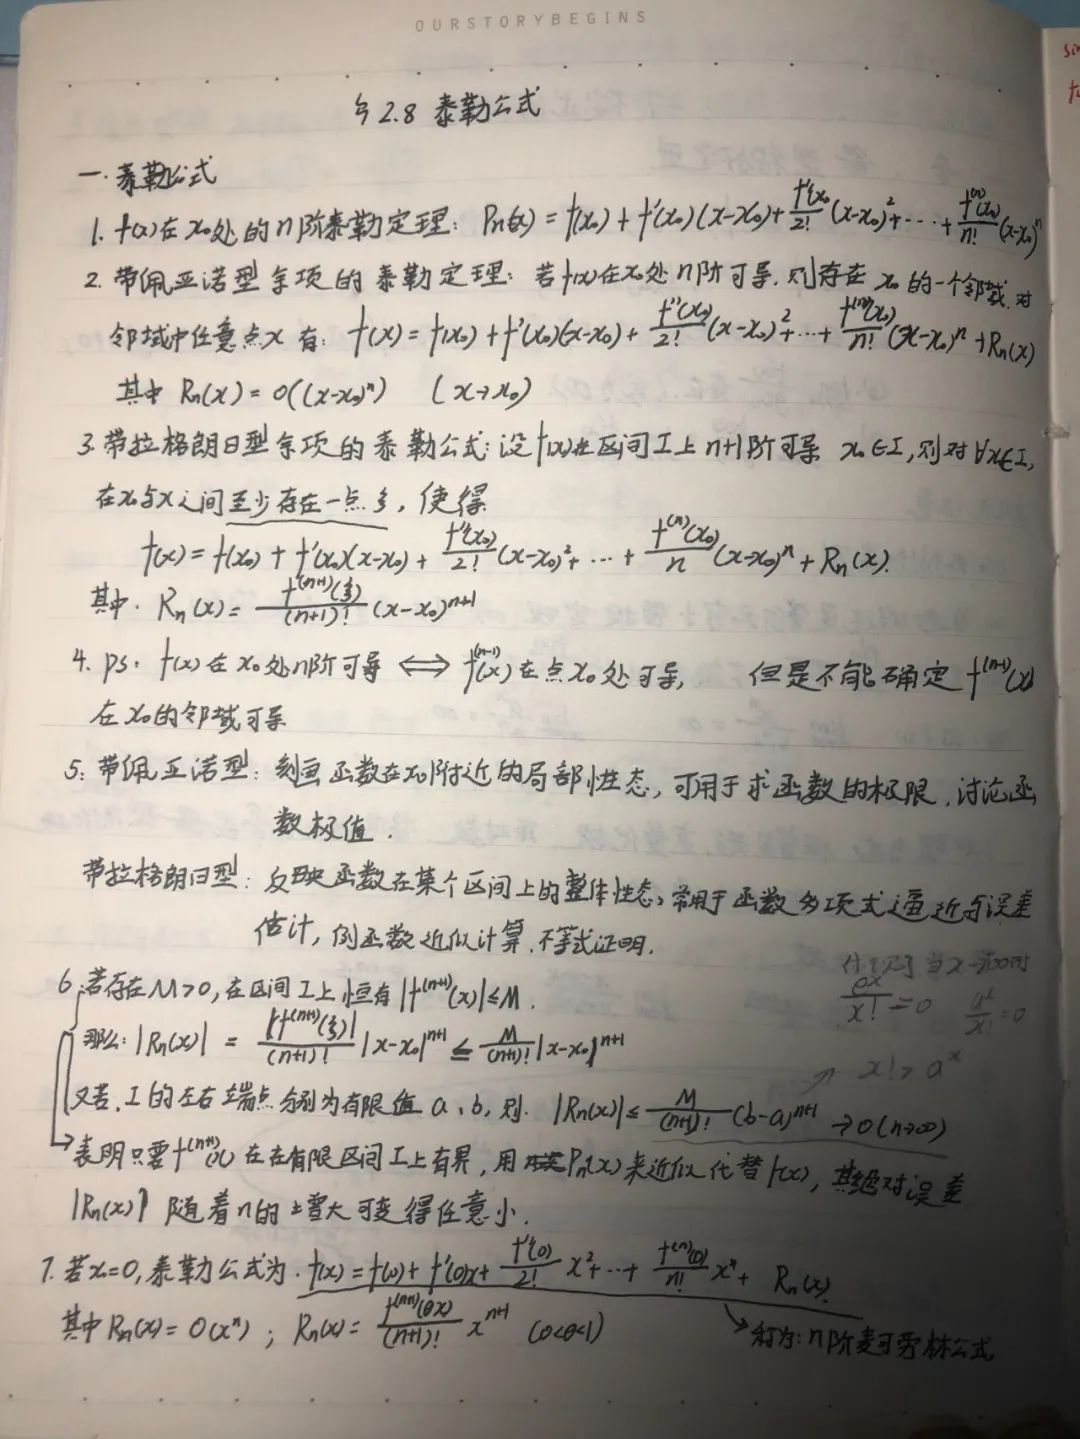 OURSTORYBEGINS
§2.8 泰勒公式
一.泰勒公式
1. f(x)在x₀处的n阶泰勒定理: Pn(x) = f(x₀) + f'(x₀)(x-x₀) + f''(x₀)/2! (x-x₀)² + ⋯ + f⁽ⁿ⁾(x₀)/n! (x-x₀)ⁿ
2. 带佩亚诺型余项的泰勒定理: 若f(x)在x₀处n阶可导,则存在x₀的一个邻域,对
邻域中任意点x有: f(x) = f(x₀) + f'(x₀)(x-x₀) + f''(x₀)/2! (x-x₀)² + ⋯ + f⁽ⁿ⁾(x₀)/n! (x-x₀)ⁿ + Rn(x)
其中 Rn(x) = o((x-x₀)ⁿ) (x→x₀)
3. 带拉格朗日型余项的泰勒公式: 设f(x)在区间I上n+1阶可导 x₀∈I, 则对∀x∈I,
在x₀与x之间至少存在一点ξ, 使得
f(x) = f(x₀) + f'(x₀)(x-x₀) + f''(x₀)/2! (x-x₀)² + ⋯ + f⁽ⁿ⁾(x₀)/n (x-x₀)ⁿ + Rn(x).
其中. Rn(x) = f⁽ⁿ⁺¹⁾(ξ)/(n+1)! (x-x₀)ⁿ⁺¹
4. ps. f(x)在x₀处n阶可导 ⟺ f⁽ⁿ⁻¹⁾(x)在点x₀处可导, 但是不能确定f⁽ⁿ⁻¹⁾(x)
在x₀的邻域可导
5: 带佩亚诺型: 刻画函数在x₀附近的局部性态, 可用于求函数的极限, 讨论函
数极值.
带拉格朗日型: 反映函数在某个区间上的整体性态, 常用于函数多项式逼近与误差
估计, 例函数近似计算,不等式证明.
6.若存在M>0, 在区间I上恒有|f⁽ⁿ⁺¹⁾(x)|≤M.
那么: |Rn(x)| = |f⁽ⁿ⁺¹⁾(ξ)|/(n+1)! |x-x₀|ⁿ⁺¹ ≤ M/(n+1)! |x-x₀|ⁿ⁺¹
当x→∞时
eˣ/x! = 0
x! > aˣ
又若, I的左右端点分别为有限值 a、b, 则. |Rn(x)| ≤ M/(n+1)! (b-a)ⁿ⁺¹ →0(n→∞)
→表明只要f⁽ⁿ⁺¹⁾(x)在在有限区间I上有界, 用Pn(x)来近似代替f(x), 其绝对误差
|Rn(x)| 随着n的增大可变得任意小.
7. 若x₀=0, 泰勒公式为. f(x) = f(0) + f'(0)x + f''(0)/2! x² + ⋯ + f⁽ⁿ⁾(0)/n! xⁿ + Rn(x).
其中Rn(x) = o(xⁿ) ; Rn(x) = f⁽ⁿ⁺¹⁾(θx)/(n+1)! xⁿ⁺¹ (0<θ<1)
→称为: n阶麦克劳林公式